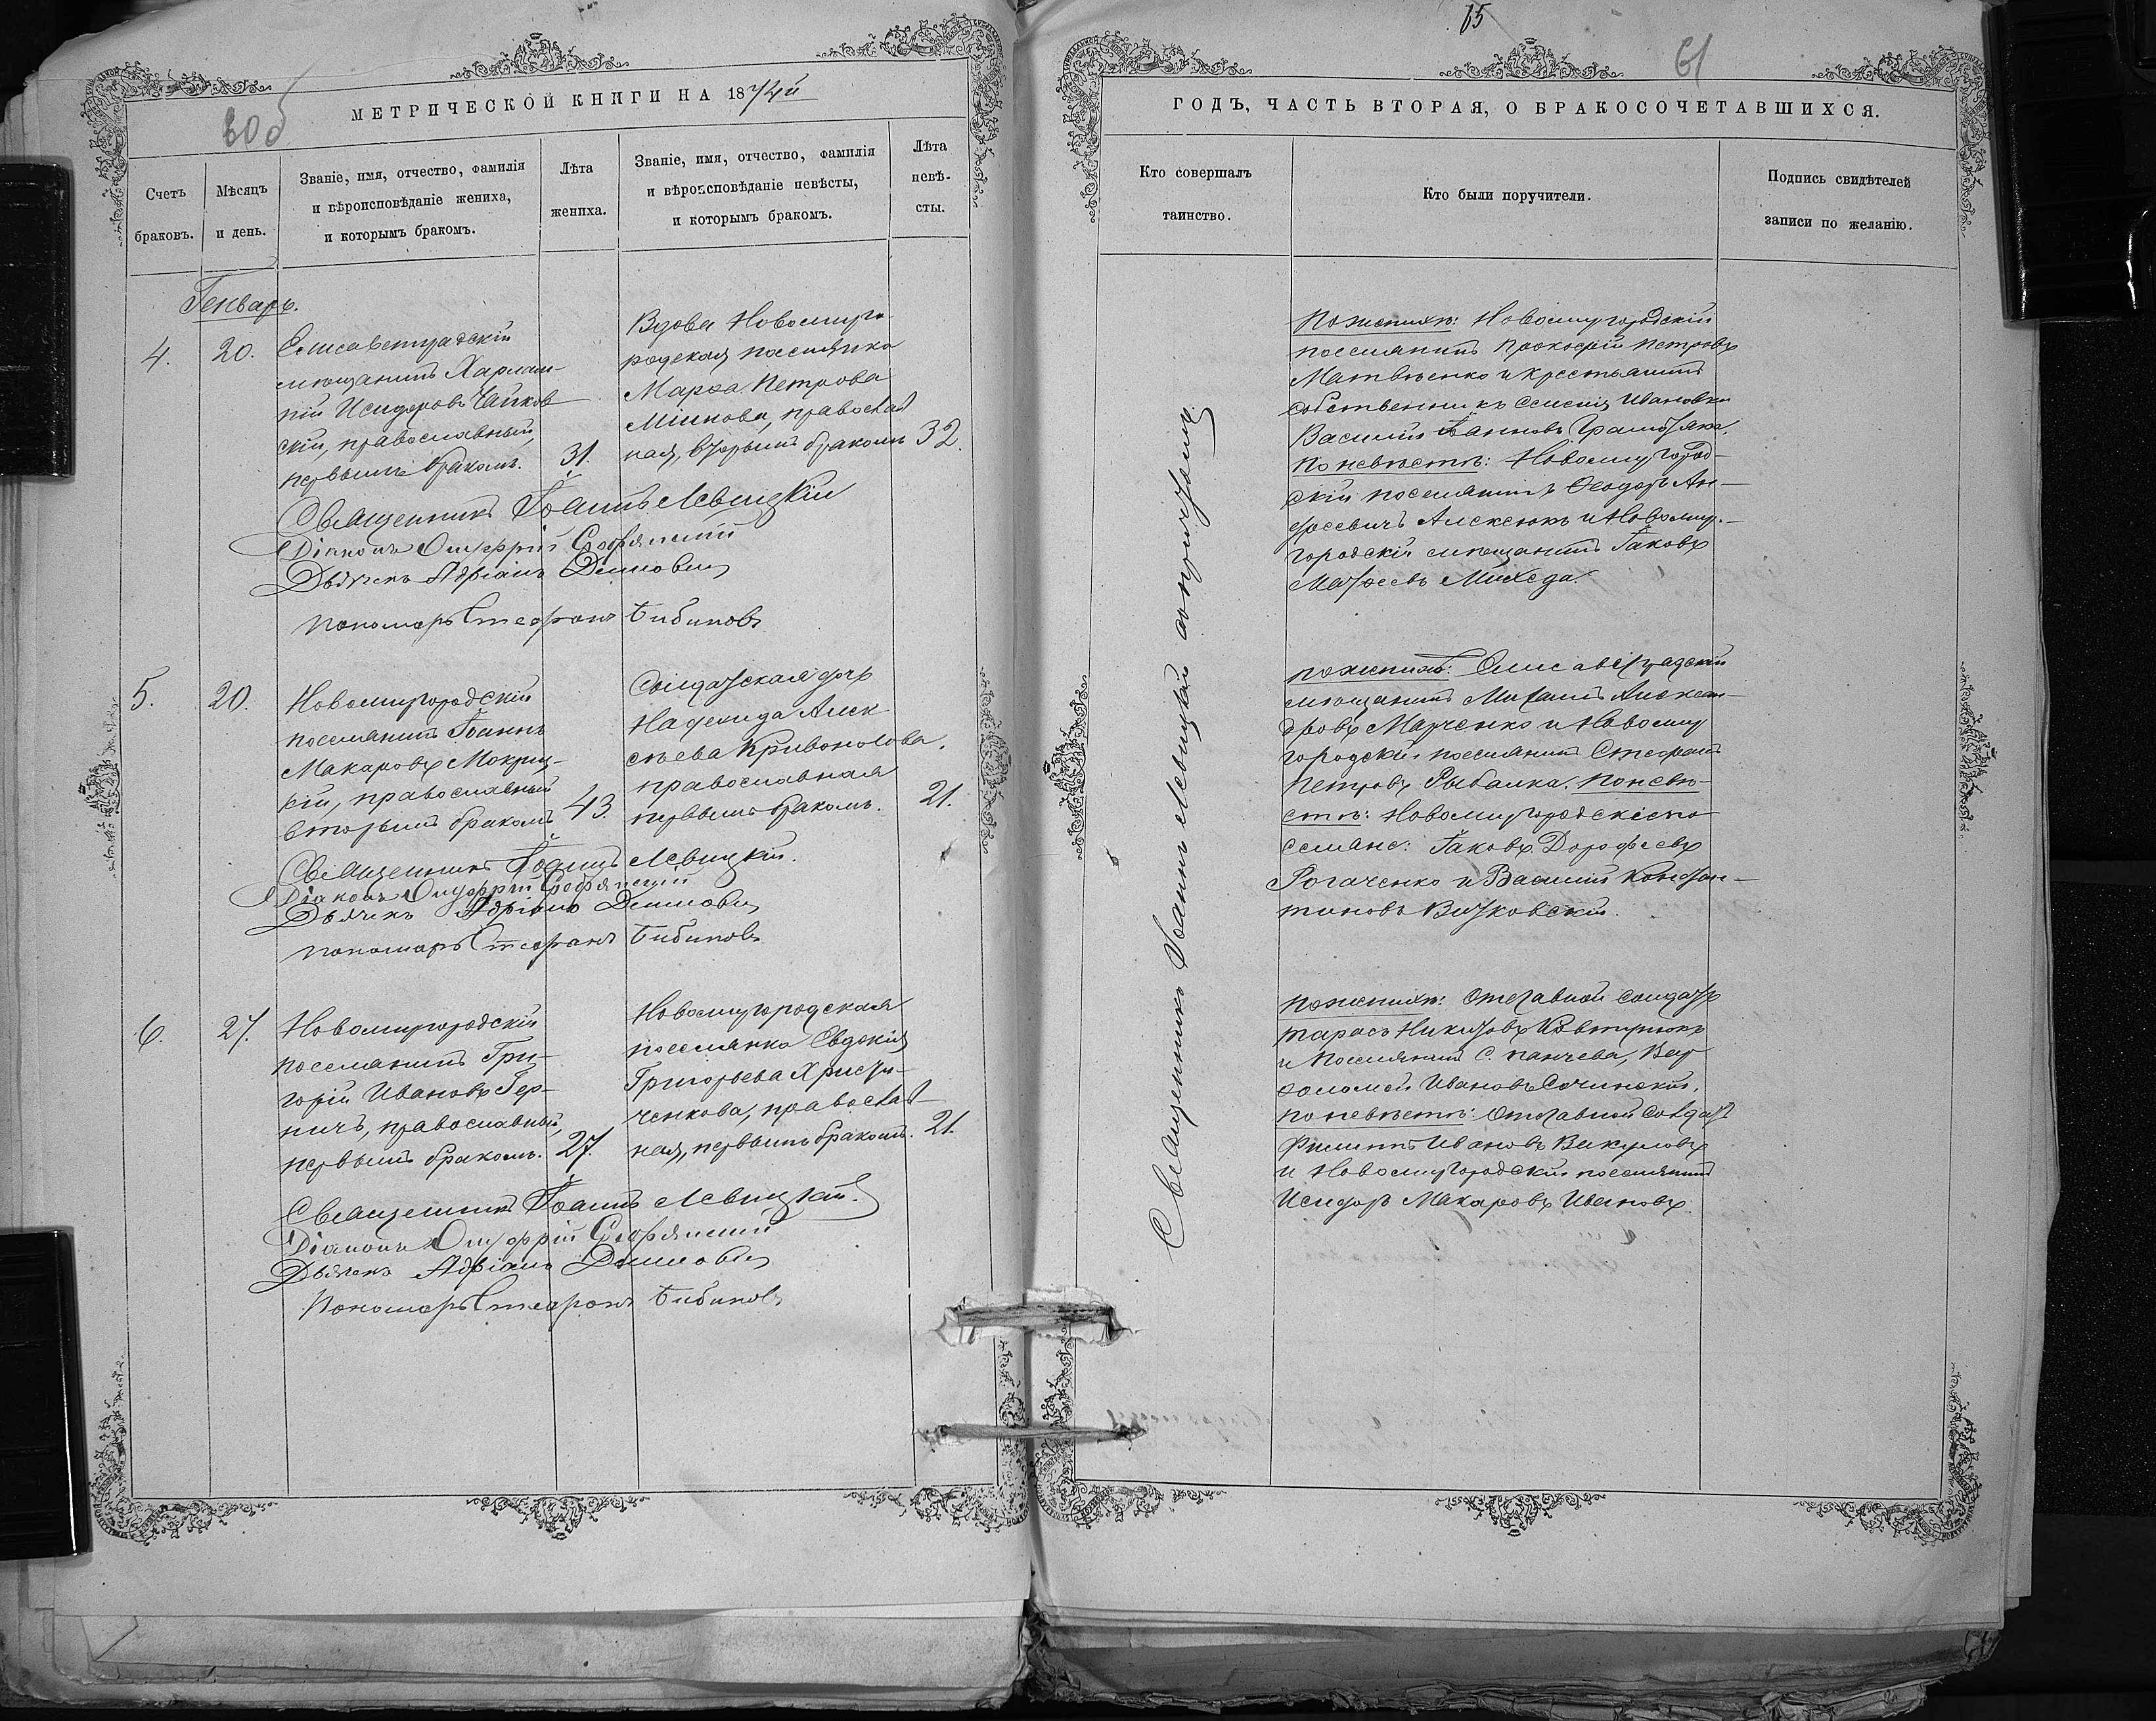 МЕТРИЧЕСКОЙ КНИГИ НА 1874й
60об
Счетъ браковъ.
Мѣсяцъ и день.
Званіе, имя, отчество, фамилія
и вѣроисповѣданіе жениха,
и которымъ бракомъ.
Лѣта жениха.
Званіе, имя, отчество, фамилія
и вѣроисповѣданіе невѣсты,
и которымъ бракомъ.
Лѣта невѣ-
сты.
Генварь.
4.
20.
Елисаветградскій
мѣщанинъ Харлам-
пій Исидоровъ Чайков
скій, православный,
первымъ бракомъ.
31.
Вдова Новомирго-
родская поселянка
Марѳа Петрова
православ
ная, вторымъ бракомъ
32.
Священникъ Іоаннъ Левицкій
Діаконъ Онуфрій
Дьячекъ Адріанъ
пономарь Стефанъ Бибиковъ
5.
20.
Новомиргородскій
поселянинъ Іоаннъ
Макаровъ Мокриц-
кій, православный
вторымъ бракомъ
43.
Солдатская дочь
Надежда Алек
сѣева Кривоносова,
православная
первымъ бракомъ.
21.
Священникъ Іоаннъ Левицкій.
Діаконъ Онуфрій
Дьячекъ Адріанъ
пономарь Стефанъ Бибиковъ
6.
27.
Новомиргородскій
поселянинъ Гри-
горій Ивановъ Гер-
ничъ, православный,
первымъ бракомъ.
27.
Новомиргородская
поселянка Евдокія
Григорьева Христи-
ченкова, православ-
ная, первымъ бракомъ.
21.
Священникъ Іоаннъ Левицкій.
Діаконъ Онуфрій
Дьячекъ Адріанъ
Пономарь Стефанъ Бибиковъ
65
61
ГОДЪ, ЧАСТЬ ВТОРАЯ, О БРАКОСОЧЕТАВШИХСЯ.
Кто совершалъ
таинство.
Кто были поручители.
Подпись свидѣтелей
записи по желанію.
Священникъ Іоаннъ Левицкій
По женихѣ: Новомиргородскій
поселянинъ Прокофій Петровъ
Матвѣенко и крестьянинъ
собственникъ селенія Ивановки
Василій
По невѣстѣ: Новомиргород-
скій поселянинъ Ѳеодоръ Ан-
Алексюкъ и Новомир-
городскій мѣщанинъ Іаковъ
Матѳеевъ
по женихѣ: Елисаветградскій
мѣщанинъ Михаилъ Алексан-
дровъ Марченко и Новомир
городскій поселянинъ Стефанъ
Петровъ Рыбалка. По невѣ-
стѣ: Новомиргородскіе по
селяне: Іаковъ Дорофеевъ
Рогаченко и Василій Констан-
тиновъ Витковскій.
По женихѣ: Отставной солдатъ
Тарасъ Никитовъ
и поселянинъ С. Панчева, Вар
ѳоломей Ивановъ Сочинскій.
По невѣстѣ: Отставной солдатъ
Филиппъ Ивановъ Викуловъ
и Новомиргородскій поселянинъ
Исидоръ Макаровъ Ивановъ.